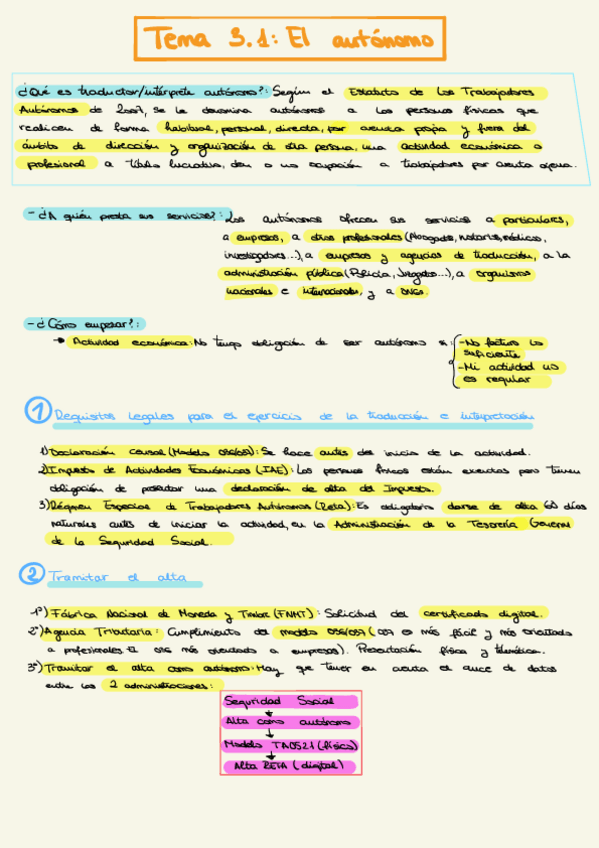 Tema 3.1: El autónomo
¿Qué es traductor/intérprete autónomo?: Según el Estatuto de los Trabajadores
Autónomos de 2007, se le denomina autónomos a las personas físicas que
realicen de forma habitual, personal, directa, por cuenta propia y fuera del
ámbito de dirección y organización de otra persona, una actividad económica o
profesional a título lucrativo, den o no ocupación a trabajadores por cuenta ajena.
- ¿A quién presta sus servicios?: Los autónomos ofrecen sus servicios a particulares,
a empresas, a otros profesionales (Abogados, notarios, médicos,
investigadores...), a empresas y agencias de traducción, a la
administración pública (Policía, Juzgados...), a organismos
nacionales e internacionales, y a ONGs.
- ¿Cómo empezar?:
→ Actividad económica: No tengo obligación de ser autónomo si:
- No facturo lo
suficiente
- Mi actividad no
es regular
1 Requisitos legales para el ejercicio de la traducción e interpretación
1) Declaración censal (Modelo 036/037): Se hace antes del inicio de la actividad.
2) Impuesto de Actividades Económicas (IAE): Las personas físicas están exentas pero tienen
obligación de presentar una declaración de alta del Impuesto.
3) Régimen Especial de Trabajadores Autónomos (Reta): Es obligatorio darse de alta 60 días
naturales antes de iniciar la actividad, en la Administración de la Tesorería General
de la Seguridad Social.
2 Tramitar el alta
1º) Fábrica Nacional de Moneda y Timbre (FNMT): Solicitud del certificado digital.
2º) Agencia Tributaria: Cumplimiento del modelo 036/037 (037 es más fácil y más orientado
a profesionales. El 036 más orientado a empresas). Presentación física y telemática.
3º) Tramitar el alta como autónomo: Hay que tener en cuenta el cruce de datos
entre las 2 administraciones:
Seguridad Social
↓
Alta como autónomo
↓
Modelo TA0521 (físico)
↓
Alta RETA (digital)